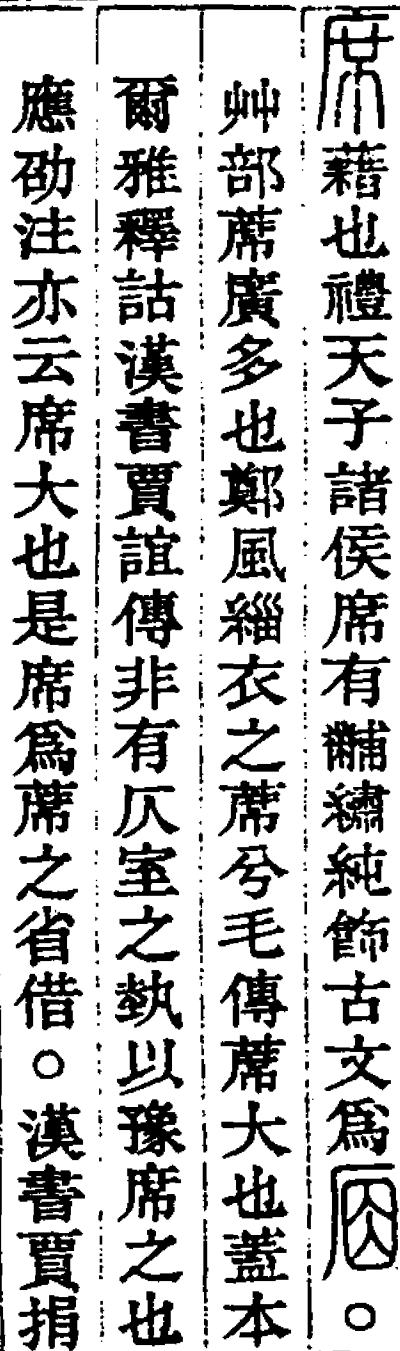 席藉也禮天子諸侯席有黼繡純飾古文為𠩆○
艸部蓆廣多也鄭風緇衣之蓆兮毛傳蓆大也蓋本
爾雅釋詁漢書賈誼傳非有仄室之埶以豫席之也
應劭注亦云席大也是席為蓆之省借○漢書賈捐